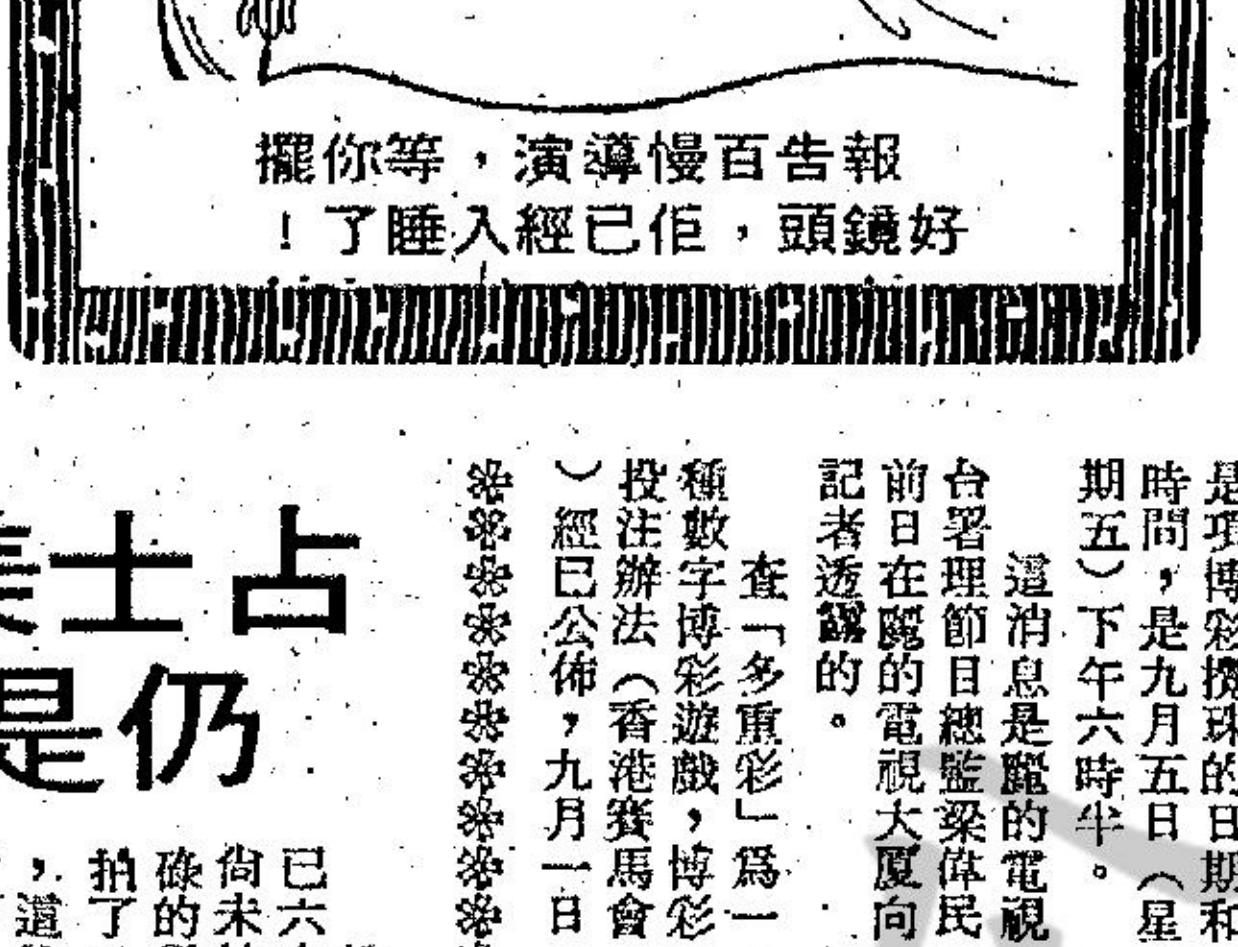 報告百慢導演，等你擺
好鏡頭，佢已經入睡了！
是項博彩攪珠的日期和
時間，是九月五日（星
期五）下午六時半。
這消息是麗的電視
台署理節目總監梁偉民
前日在麗的電視大厦向
記者透露的。
查「多重彩」爲一
種數字博彩遊戲，博彩
投注辦法（香港賽馬會
）經已公佈，九月一日
占士
仍是
已六
尚未
碌的
拍了
，這